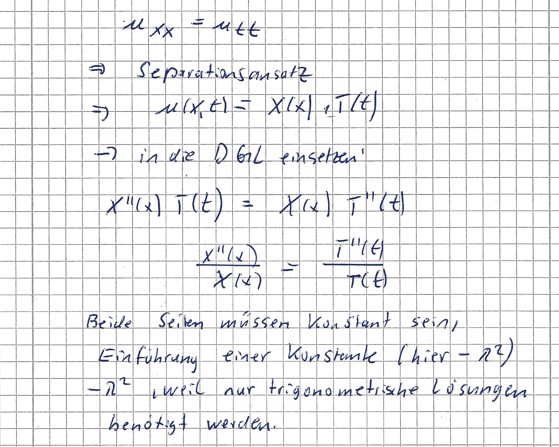 u_xx = u_tt
⇒ Separationsansatz
⇒ u(x,t) = X(x) · T(t)
→ in die DGL einsetzen:
X''(x) T(t) = X(x) T''(t)
X''(x)/X(x) = T''(t)/T(t)
Beide Seiten müssen konstant sein,
Einführung einer Konstante (hier -λ²)
-λ², weil nur trigonometrische Lösungen
benötigt werden.